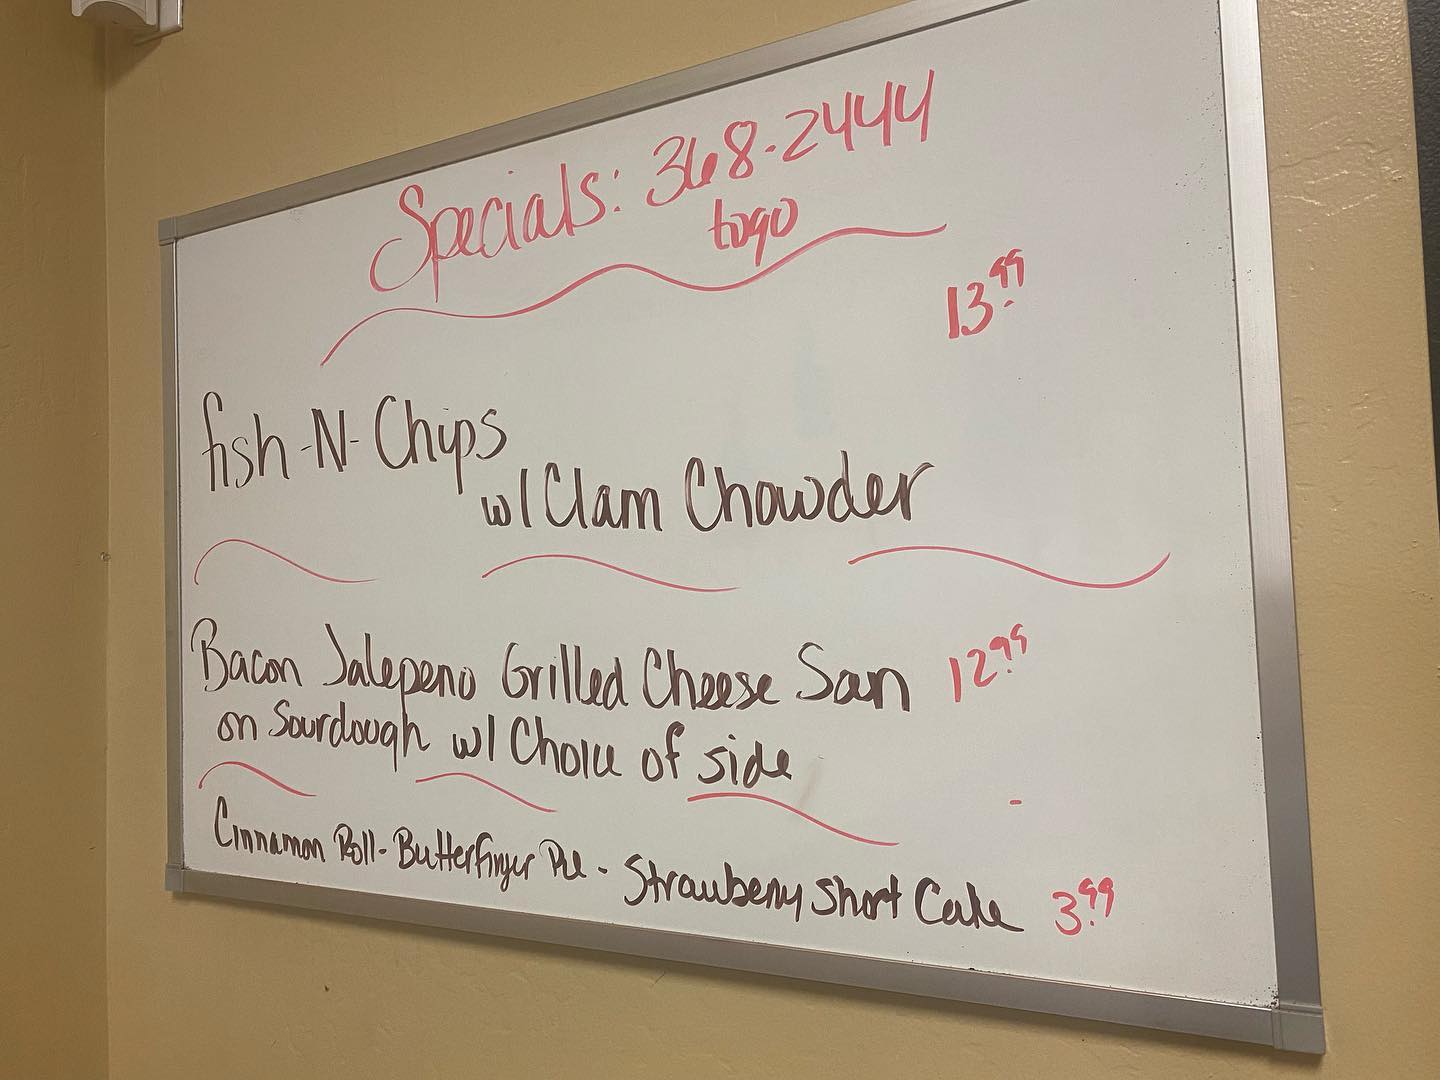 Specials: 368-2444
togo
13.99
fish-N-Chips
w/ Clam Chowder
Bacon Jalepeno Grilled Cheese San 12.99
on Sourdough w/ Choice of side
Cinnamon Roll - Butterfinger Pie - Strawberry Short Cake 3.99